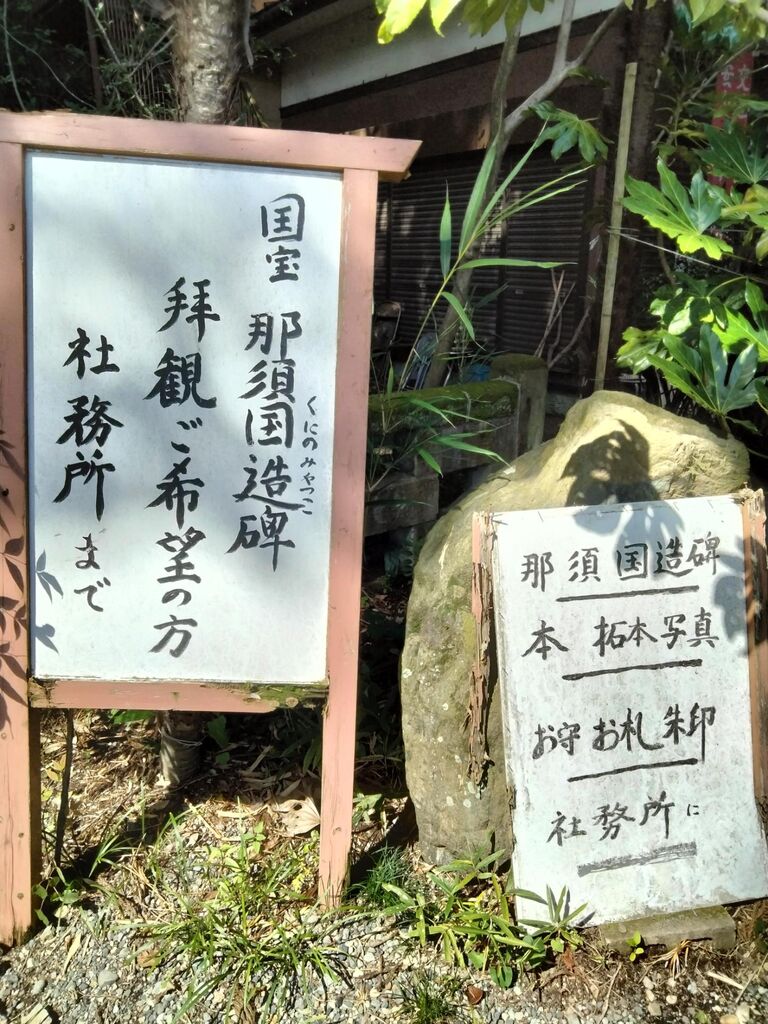 国宝 那須国造碑
くにのみやつこ
拝観ご希望の方
社務所まで
那須国造碑
本 拓本写真
お守お札朱印
社務所に